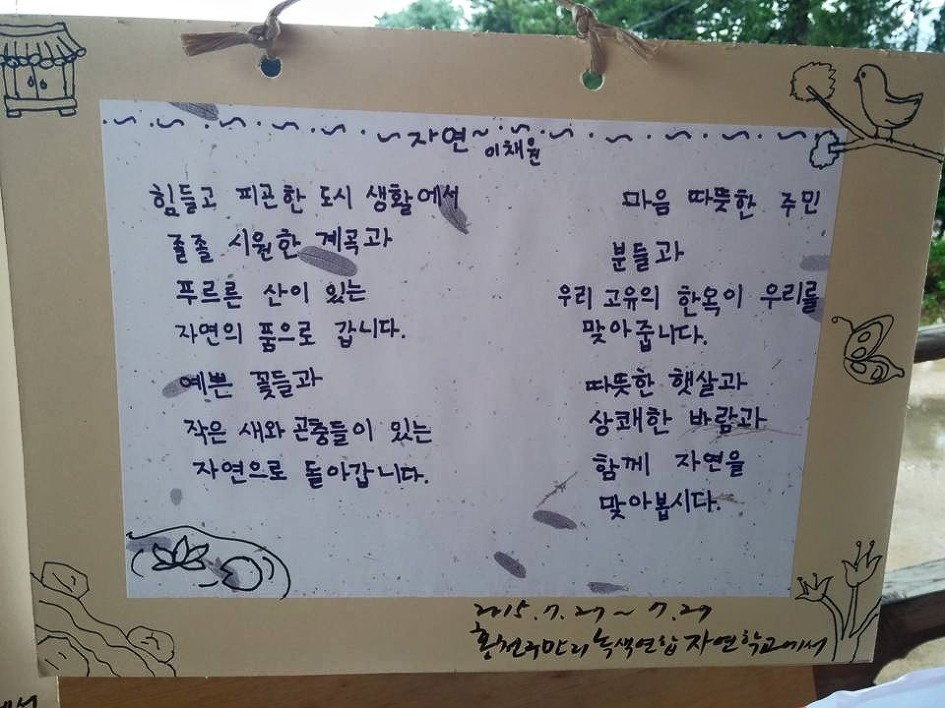 ~자연~
이채원
힘들고 피곤한 도시 생활에서
졸졸 시원한 계곡과
푸르른 산이 있는
자연의 품으로 갑니다.
예쁜 꽃들과
작은 새와 곤충들이 있는
자연으로 돌아갑니다.
마음 따뜻한 주민
분들과
우리 고유의 한옥이 우리를
맞아줍니다.
따뜻한 햇살과
상쾌한 바람과
함께 자연을
맞아봅시다.
2015.7.27~7.29
홍천 녹색연합 자연학교에서
에서